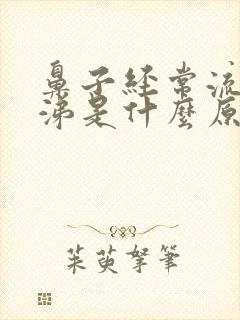 鼻子經常流
涕是什麼原
茱萸拏筆